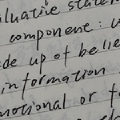 evaluative state
component: 
de up of belie
information
motional or f